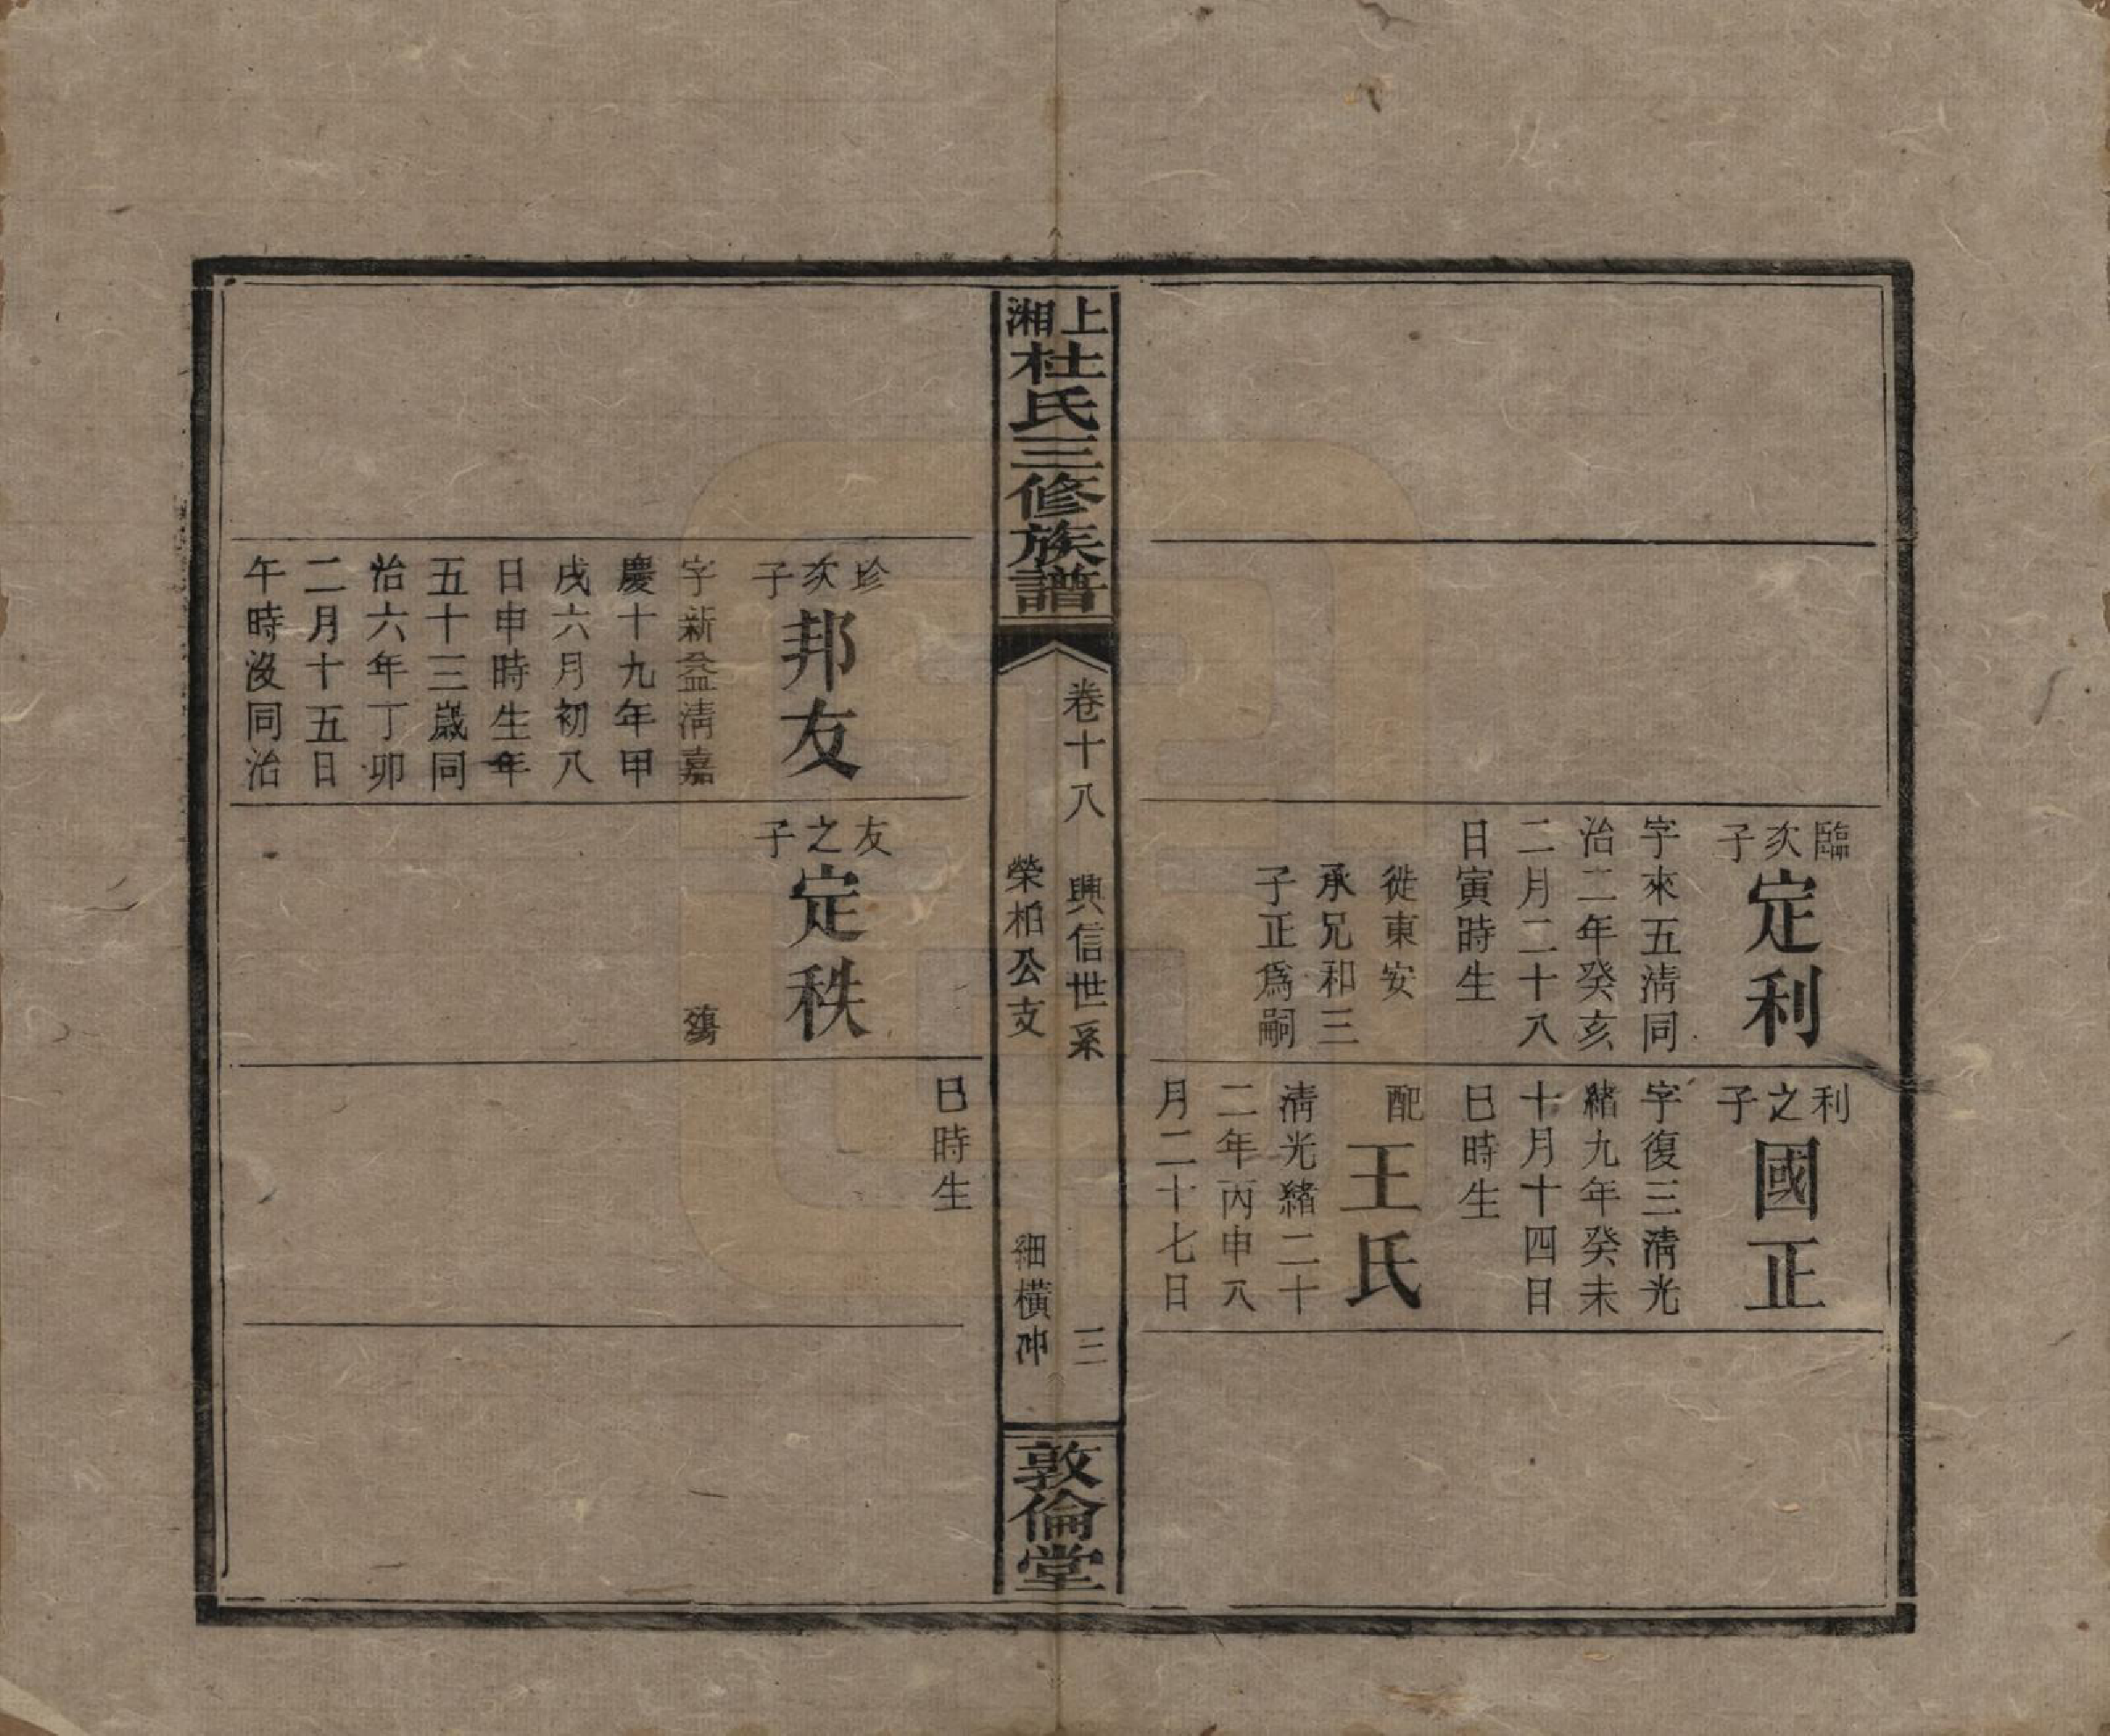 臨次子
定利
字來五清同
治二年癸亥
二月二十八
日寅時生
徙東安
承兄和三
子正爲嗣
利之子
國正
字復三清光
緒九年癸未
十月十四日
巳時生
配
王氏
清光緒二十
二年丙申八
月二十七日
上湘
杜氏三修族譜
卷十八
興信世系
三
榮柏公支
細橫冲
敦倫堂
珍次子
邦友
字新益清嘉
慶十九年甲
戌六月初八
日申時生年
五十三歲同
治六年丁卯
二月十五日
午時沒同治
友之子
定秩
殤
巳時生